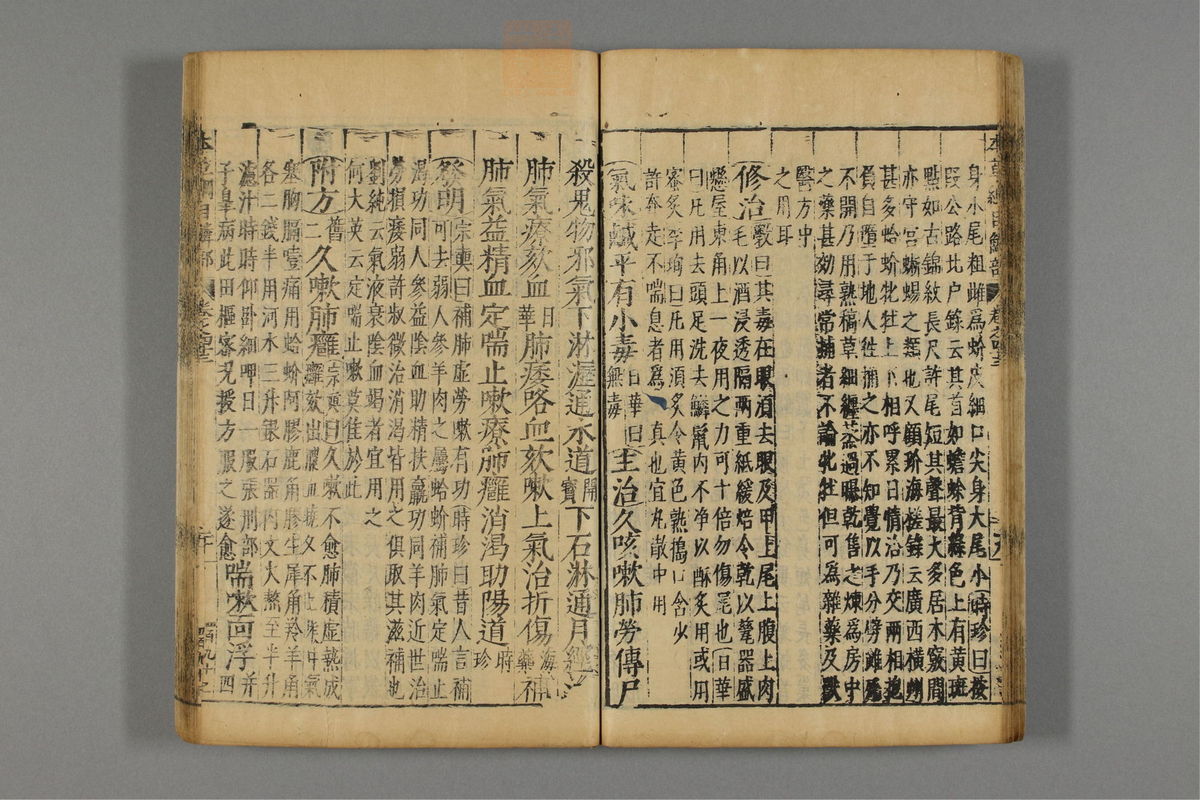 身小尾粗雌爲蛤皮細口尖身大尾小時珍曰按
段公路北户錄云其首如蟾蜍背綠色上有黄斑
點如古錦紋長尺許尾短其聲最大多居木竅間
亦守宫蜥蜴之類也又顧玠海槎錄云廣西横州
甚多蛤蚧牝牡上下相呼累日情洽乃交兩相抱
負自墮于地人徃捕之亦不知覺以手分劈雖死
不開乃用熟稿草細纒蒸過曝乾售之煉爲房中
之藥甚効尋常捕者不論牝牡但可爲雜藥及獸
醫方中
之用耳
修治斆曰其毒在眼須去眼及甲上尾上腹上肉
毛以酒浸透隔兩重紙緩焙令乾以甆器盛
懸屋東角上一夜用之力可十倍勿傷尾也日華
曰凡用去頭足洗去鱗鬣内不净以酥炙用或用
蜜炙李珣曰凡用須炙令黄色熟搗口含少
許奔走不喘息者爲真也宜丸散中用
氣味鹹平有小毒日華曰無毒主治久咳嗽肺勞傳尸
殺鬼物邪氣下淋瀝通水道開寳下石淋通月經
肺氣療欬血日華肺痿咯血欬嗽上氣治折傷海藥補
肺氣益精血定喘止嗽療肺癰消渴助陽道時珍
發明宗奭曰補肺虚勞嗽有功時珍曰昔人言補
可去弱人參羊肉之屬蛤蚧補肺氣定喘止
渴功同人參益陰血助精扶羸功同羊肉近世治
勞損痿弱許叔微治消渴皆用之俱取其滋補也
劉純云氣液衰陰血竭者宜用之
何大英云定喘止嗽莫佳於此
附方舊二久嗽肺癰宗奭曰久嗽不愈肺積虚熱成
癰欬出膿血曉夕不止喉中氣
塞胸膈噎痛用蛤蚧阿膠鹿角膠生犀角羚羊角
各二錢半用河水三升銀石器内文火熬至半升
濾汁時時仰卧細呷日一服張刑部
子臯病此田樞密况授方服之遂愈喘嗽面浮并四